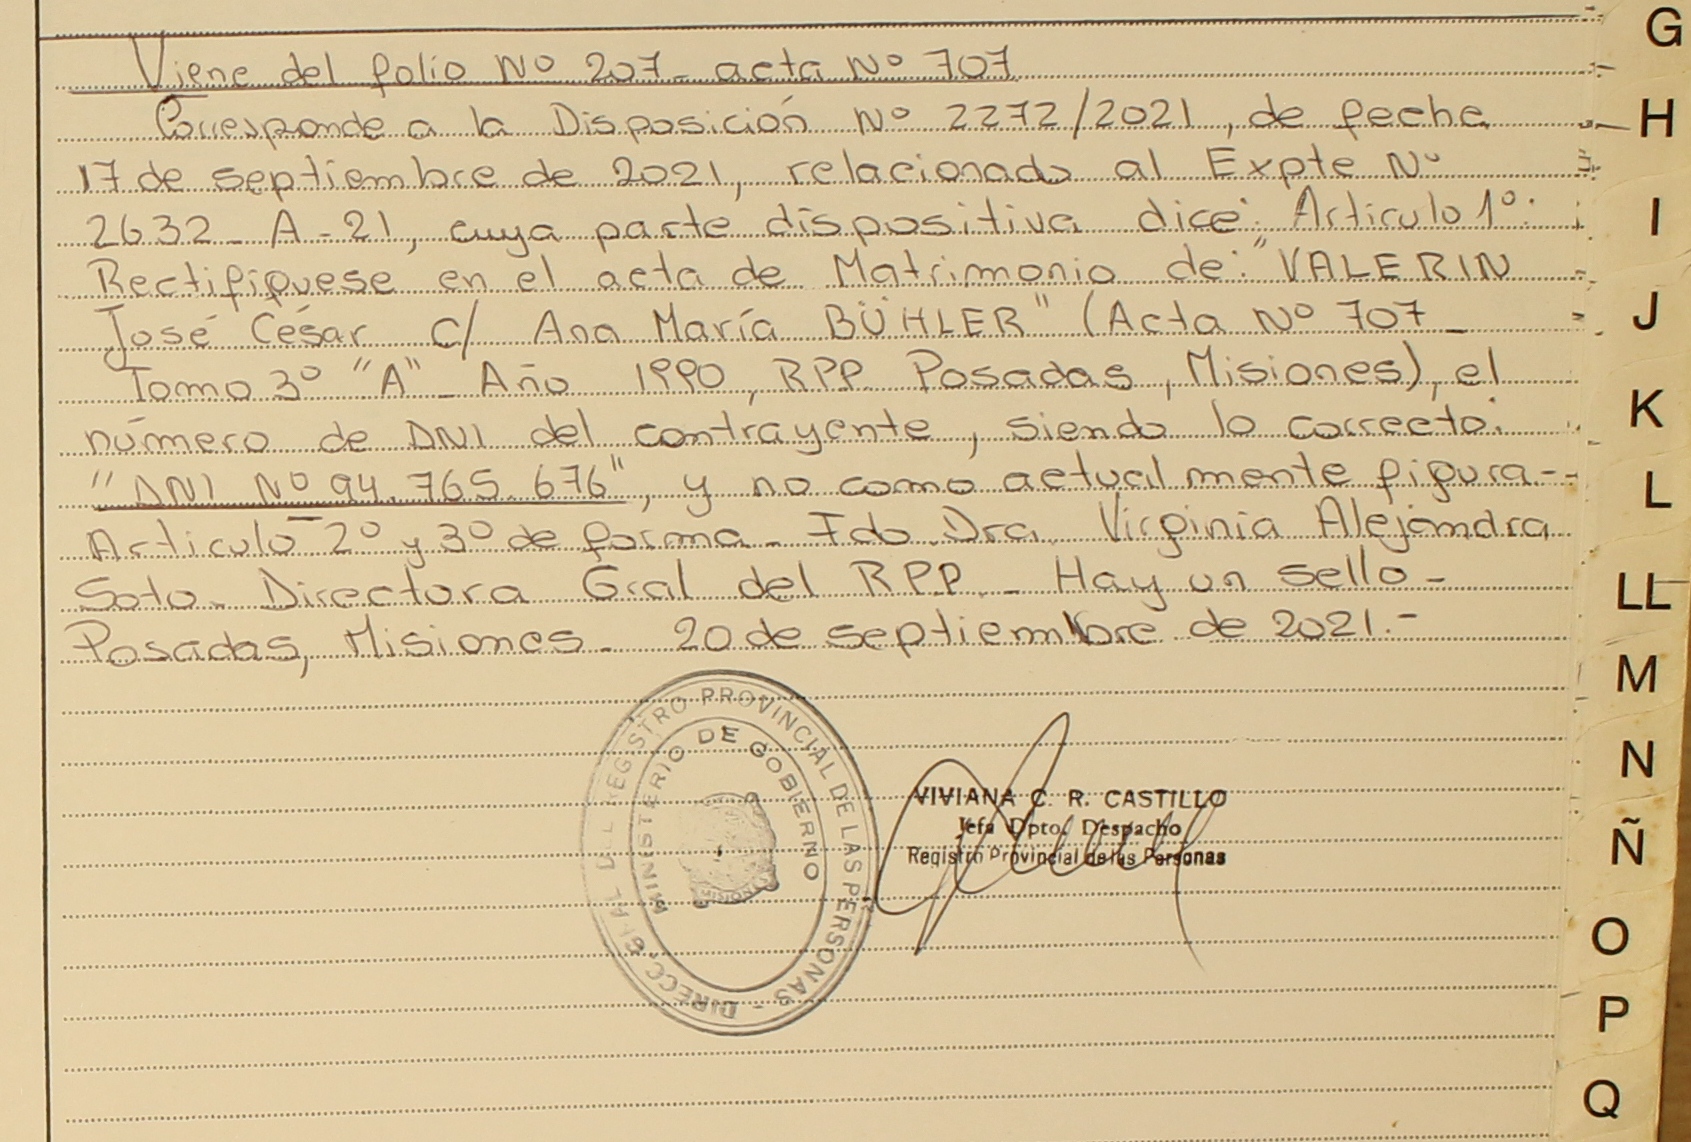 Viene del folio Nº 207_ acta Nº 707
Corresponde a la Disposición Nº 2272/2021, de fecha
17 de septiembre de 2021, relacionado al Expte Nº
2632_ A-21, cuya parte dispositiva dice: Articulo 1º:
Rectifíquese en el acta de Matrimonio de: "VALERIN
José César c/ Ana María BÜHLER" (Acta Nº 707_
Tomo 3º "A"_ Año 1990, RPP Posadas, Misiones), el
número de DNI del contrayente, siendo lo correcto:
"DNI Nº 94.765.676", y no como actualmente figura.-
Articulo 2º y 3º de forma_ Fdo Dra. Virginia Alejandra
Soto_ Directora Gral del RPP_ Hay un sello_
Posadas, Misiones_ 20 de septiembre de 2021.-
DIRECC. GRAL DEL REGISTRO PROVINCIAL DE LAS PERSONAS -
MINISTERIO DE GOBIERNO
MISIONES
VIVIANA C. R. CASTILLO
Jefa Dpto. Despacho
Registro Provincial de las Personas
G
H
I
J
K
L
LL
M
N
Ñ
O
P
Q